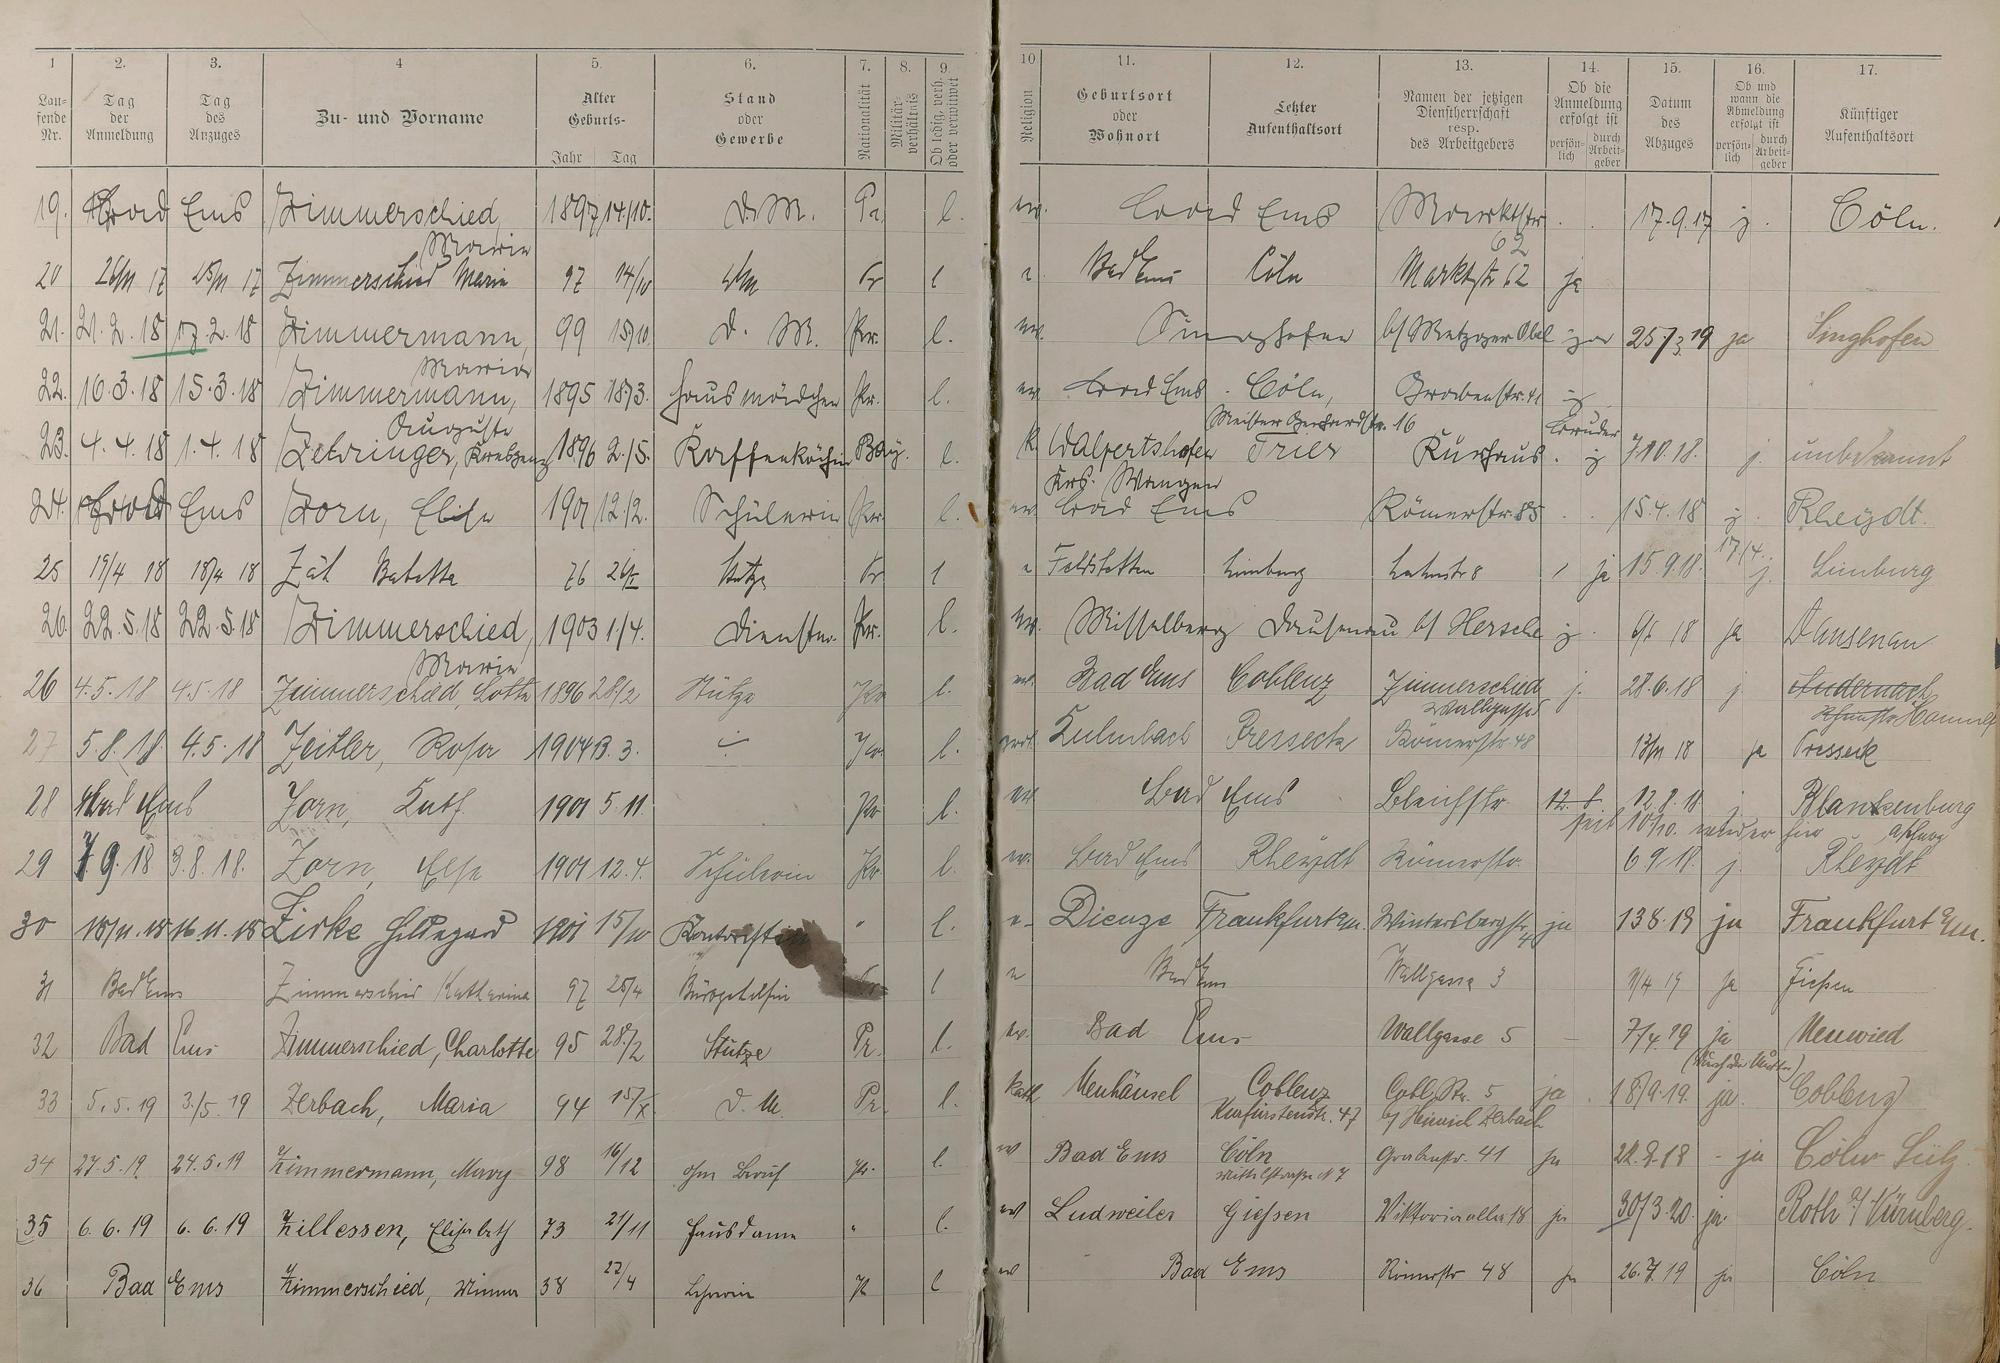 1 2. 3. 4 5. 6. 7. 8. 9. 10 11. 12. 13. 14. 15. 16. 17.
Lau-fende Nr. Tag der Anmeldung Tag des Anzuges Zu- und Vorname Alter Geburts- Jahr Tag Stand oder Gewerbe Nationalität Militär-verhältnis Ob ledig, verh. oder verwitwet Religion Geburtsort oder Wohnort Letzter Aufenthaltsort Namen der jetzigen Dienstherrschaft resp. des Arbeitgebers Ob die Anmeldung erfolgt ist persön-lich durch Arbeit-geber Datum des Abzuges Ob und wann die Abmeldung erfolgt ist persön-lich durch Arbeit-geber Künftiger Aufenthaltsort
19. Bad Ems Zimmerschied, Marie 1897 14/10. D. M. Pr. l. ev. Bad Ems Marktstr 62 17.9.17 j. Cöln.
20 26/11 17 25/11 17 Zimmerschied Marie 97 14/10 DM Pr l e. Bad Ems Cöln Marktstr 62 ja
21. 21.2.18 17.2.18 Zimmermann, Maria 99 15/10. D. M. Pr. l. ev. Singhofen b/ Metzger Obel ja 25./3.19 ja Singhofen
22. 16.3.18 15.3.18 Zimmermann, Auguste 1895 18/3. Hausmädchen Pr. l. ev Bad Ems Cöln, Meister Gerhardstr. 16 Grabenstr. 41 j. Bruder
23. 4.4.18 1.4.18 Zetringer, Kreszenz 1896 2./5. Kaffeeköchin Bay. l. k Walpertshofen Krs. Wangen Trier Kurhaus. j 7.10.18. j. unbekannt
24. Bad Ems Zorn, Else 1901 12./2. Schülerin Pr. l. ev Bad Ems Römerstr. 85 15.4.18 j. 17/4. Rheydt.
25 19/4 18 18/4 18 Zäh Babetta 76 Stütze Pr l e Feldstetten Limburg Lahnstr 8 / ja 15.9.18. j. Limburg
26. 22.5.18 22.5.18 Zimmerschied, Marie 1903 1./4. Dienstm. Pr. l. ev. Misselberg Dausenau b/ Hersche j. 18 ja Dausenau
26 4.5.18 4.5.18 Zimmerschied, Lotte 1896 28/2 Stütze Pr l. ev. Bad Ems Coblenz Zimmerschied Wallgasse j. 28.6.18 j. Andernach
27 5.8.18. 4.5.18 Zeitler, Rosa 1904 13.3. l. prot. Kulmbach Presseck Römerstr. 48 13/11 18 ja Presseck
28 Bad Ems Zorn, Kath. 1901 5.11. Pr l. ev Bad Ems Bleichstr. 12.8. 12.8.18 j. Blankenburg
seit 10/10. wieder hier
29 7 9.18 3.8.18. Zorn, Else 1901 12.4. Schülerin Pr. l. ev. Bad Ems Rheydt Römerstr. 6 9.18. j. Rheydt
30 18/11.18 16.11.18 Zirke Hildegard 1901 15/10 Kontoristin " l. e. Dieuze Frankfurt a/m. Wintersbergstr. ja 13 8.19 ja Frankfurt a/m.
31 Bad Ems Zimmerschied Katharina 97 25/4 Bürogehilfin Pr. l e Bad Ems Wallgasse 3 1/4 19 ja Gießen
32 Bad Ems Zimmerschied, Charlotte 95 28./2 Stütze Pr. l. ev. Bad Ems Wallgasse 5 – 7/4.19 ja (durch die Mutter) Neuwied
33 5.5.19 3./5.19 Zerbach, Maria 94 15/X D. M. Pr. l. kath. Neuhäusel Coblenz Kurfürstenstr. 47 Cobl. Str. 5 b/ Heinrich Zerbach ja 18/9.19. ja. Coblenz
34 27.5.19. 24.5.19 Zimmermann, Mary 98 16/12 ohne Beruf Pr. l. ev Bad Ems Cöln Mittelstraße N 7 Grabenstr. 41 ja 22.8.19 - ja Cöln Sülz
35 6.6.19 6.6.19 Zillessen, Elisabeth 73 21/11 Hausdame " l. ev Ludweiler Giessen Viktoriaallee 18 ja 30/3.20. ja. Roth b/ Nürnberg.
36 Bad Ems Zimmerschied, Minna 38 22/4 Lehrerin Pr l ev Bad Ems Römerstr 48 ja 26.7.19 ja Cöln